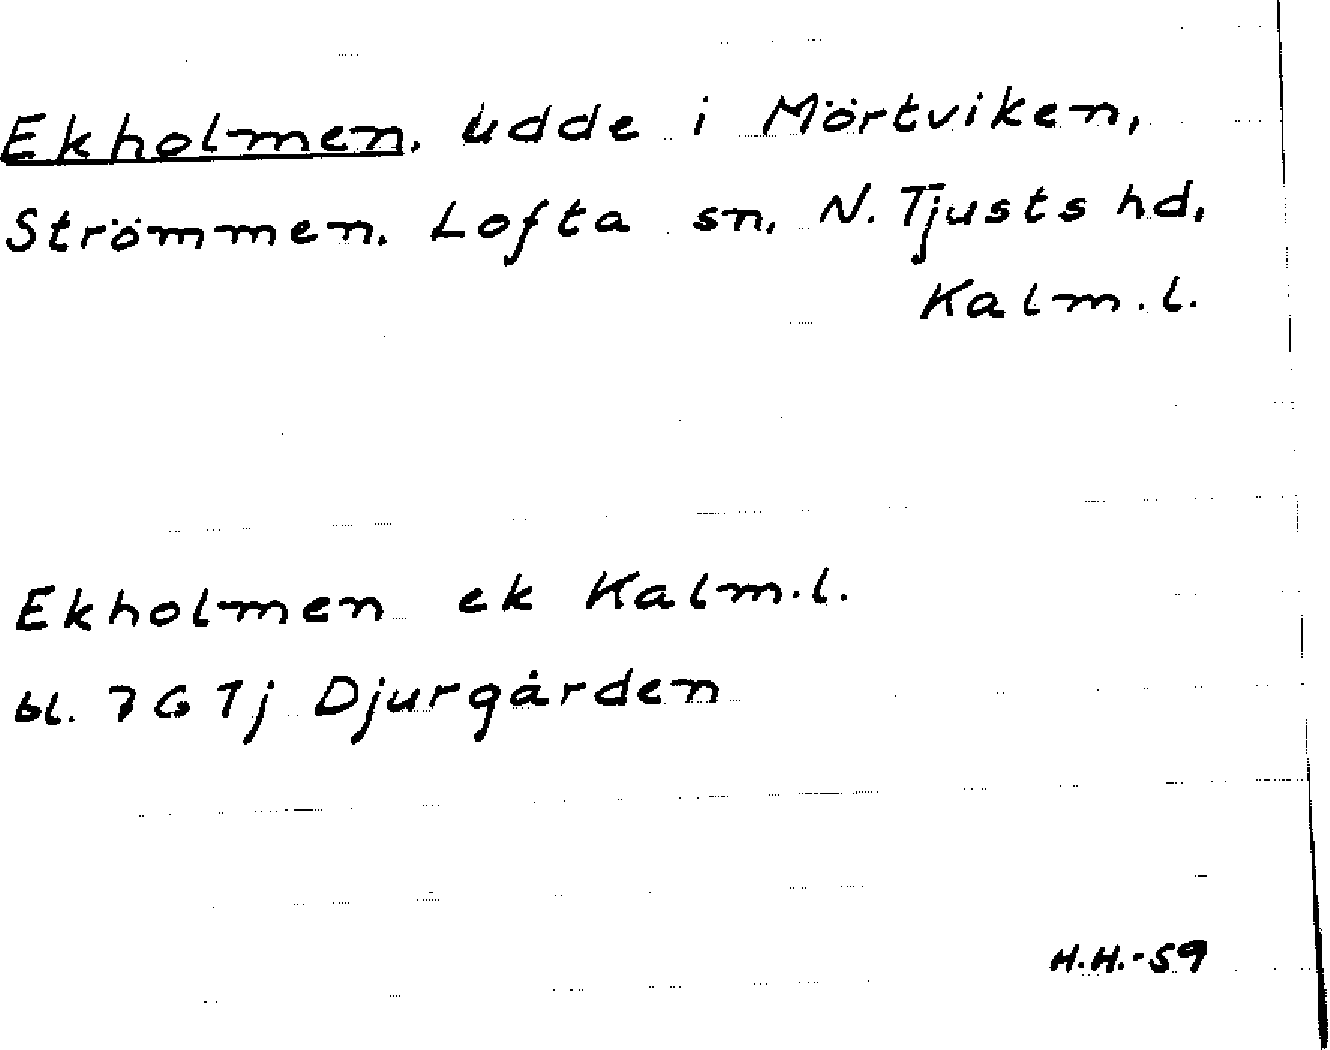 Ekholmen. udde i Mörtviken,
Strömmen. Lofta sn, N. Tjusts hd,
Kalm.l.
Ekholmen ek Kalm.l.
bl. 7G Tj Djurgården
H.H.-59